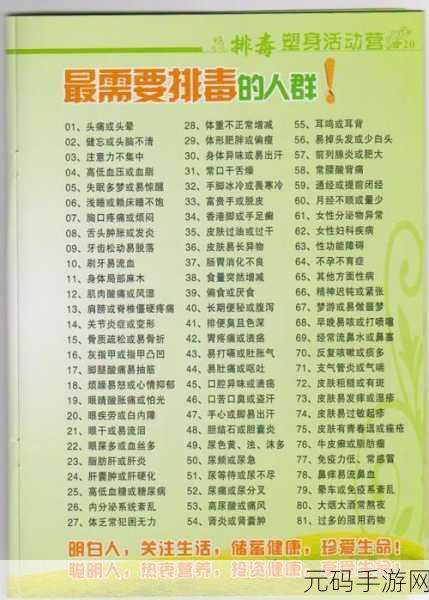 排毒 塑身活动营 20
最需要排毒的人群！
01、头痛或头晕
02、健忘或头脑不清
03、注意力不集中
04、高低血压或血脂
05、失眠多梦或易惊醒
06、浅睡或赖床睡不饱
07、胸口疼痛或烦闷
08、舌头肿胀或发炎
09、牙齿松动易脱落
10、刷牙易流血
11、身体局部麻木
12、肌肉酸痛或风湿
13、肩膀或脊椎僵硬疼痛
14、关节炎症或变形
15、骨质疏松或易骨折
16、灰指甲或指甲凸凹
17、脚腿酸痛易抽筋
18、烦躁易怒或心情抑郁
19、眼睛酸胀痛或怕光
20、眼疾劳或白内障
21、眼干或易流泪
22、眼屎多或血丝多
23、脂肪肝或肝炎
24、肝囊肿或肝硬化
25、高低血糖或糖尿病
26、内分泌系统紊乱
27、体乏常犯困无力
28、体重不正常增减
29、体形肥胖或偏瘦
30、身体异味或易出汗
31、常口干舌燥
32、手脚冰冷或畏寒冷
33、富贵手或脱皮
34、香港脚或手足癣
35、皮肤过油或过干
36、皮肤易长异物
37、肠胃消化不良
38、食量突然增减
39、偏食或厌食
40、长期便秘或腹泻
41、排便臭且色深
42、胃疼痛或溃疡
43、易打嗝或肚胀气
44、易肚痛或呕吐
45、口腔异味或溃疡
46、口苦口臭或盗汗
47、手心或脚易出汗
48、胆结石或胆囊炎
49、尿色黄、浊、沫多
50、尿频或尿急
51、尿等待或尿不尽
52、尿痛或尿分叉
53、高尿酸或痛风
54、肾炎或肾囊肿
55、耳鸣或耳背
56、易掉头发或少白头
57、前列腺炎或肥大
58、常腰酸背痛
59、通经或提前闭经
60、月经不顺或量少
61、女性分泌物异常
62、女性妇科疾病
63、性功能障碍
64、不孕不育症
65、其他方面性病
66、精神迟钝或紧张
67、梦游或易做噩梦
68、早晚易咳或打喷嚏
69、经常流鼻水或鼻塞
70、反复咳嗽或痰多
71、支气管炎或气喘
72、皮肤粗糙或有斑
73、皮肤易发痒或湿疹
74、皮肤易过敏起疹
75、皮肤有青春逗或痤疮
76、牛皮癣或脂肪瘤
77、免疫力低、常感冒
78、鼻痒易流鼻血
79、晕车或免疫系紊乱
80、大烟大酒常熬夜
81、过多的服用药物
明白人，关注生活，储蓄健康，珍爱生命！
聪明人，热衷营养，投资健康，享受生命！
元码手游网